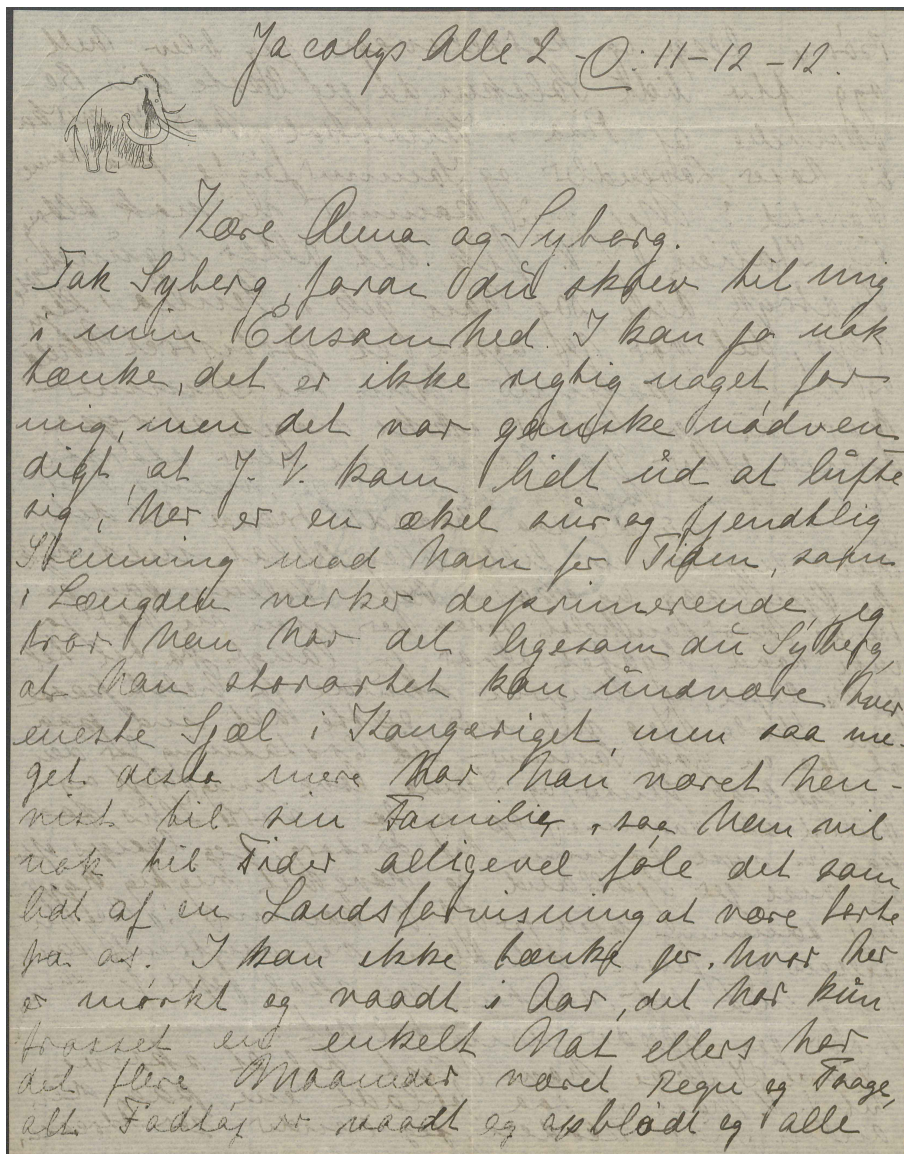 Jacobys Alle 2 - Ø: 11-12-12.
Kære Anna og Syberg.
Tak Syberg, fordi du skrev til mig
i min Ensomhed. I kan jo nok
tænke, det er ikke rigtig noget for
mig, men det var ganske nødven
digt, at J. V. kom lidt ud at lufte
sig, her er en ækel sur og fjendtlig
Stemning mod ham for Tiden, som
i Længden virker deprimerende, jeg
tror han har det ligesom du Syberg,
at han storartet kan undvære hver
eneste Sjæl i Kongeriget, men saa me-
get desto mere har han været hen-
vist til sin Familie, saa han vil
nok til Tider alligevel føle det som
lidt af en Landsforvisning at være borte
fra os. I kan ikke tænke jer, hvor her
er mørkt og vaadt i Aar, det har kun
frosset en enkelt Nat ellers har
det flere Maaneder været Regn og Taage,
alt Fodtøj er vaadt og opblødt og alle